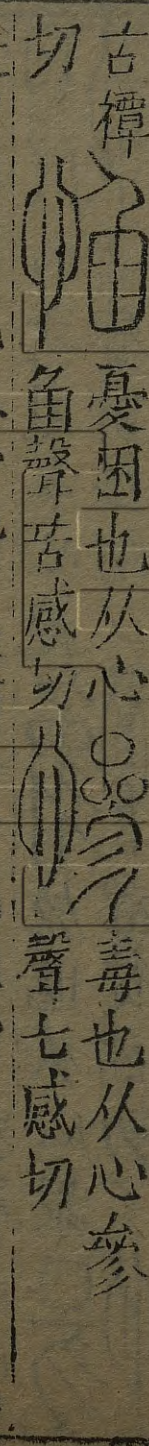 古禫
切
惂
憂困也从心
臽聲苦感切
慘
毒也从心參
聲七感切